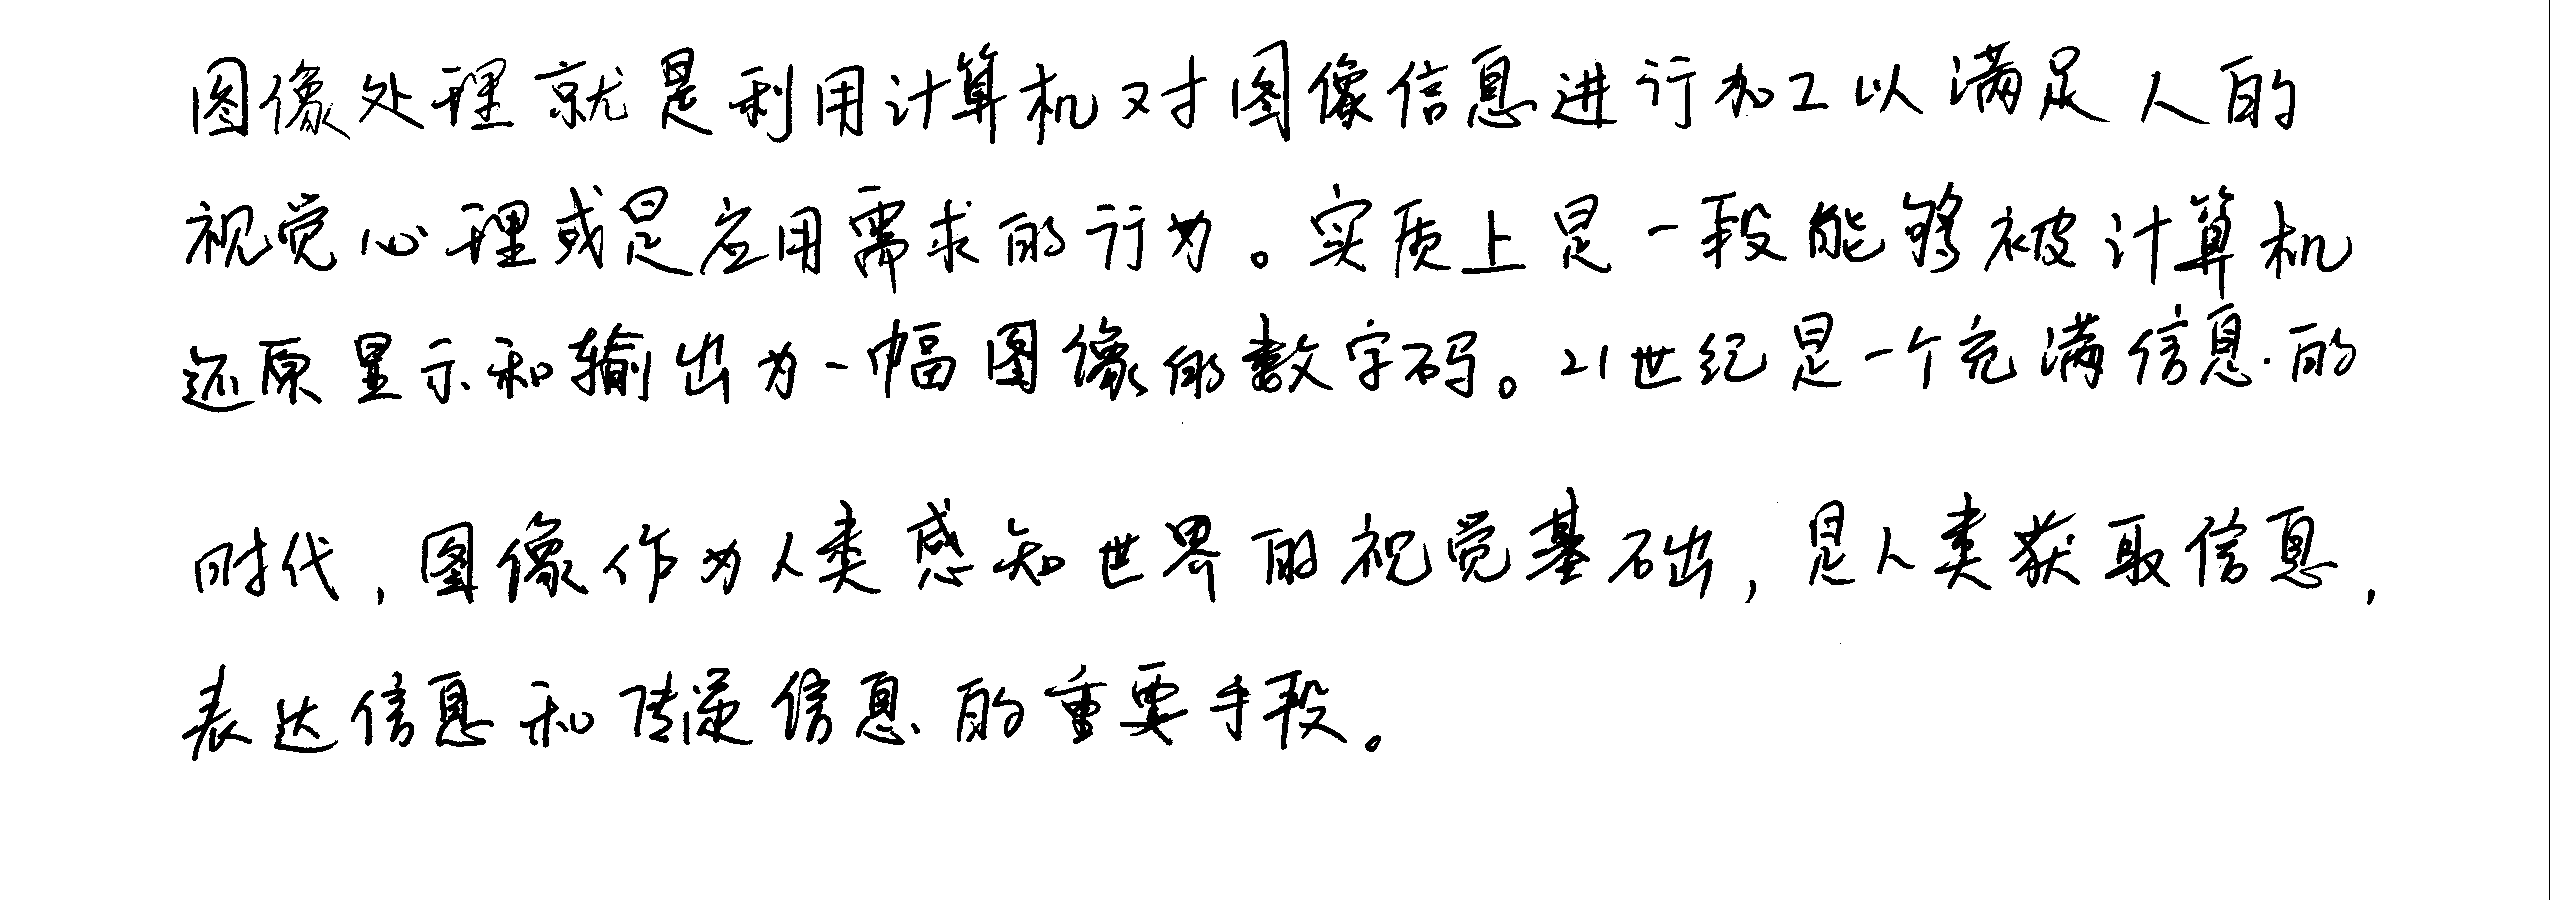 图像处理就是利用计算机对图像信息进行加工以满足人的
视觉心理或是应用需求的行为。实质上是一段能够被计算机
还原显示和输出为一幅图像的数字码。21世纪是一个充满信息的
时代，图像作为人类感知世界的视觉基础，是人类获取信息，
表达信息和传递信息的重要手段。